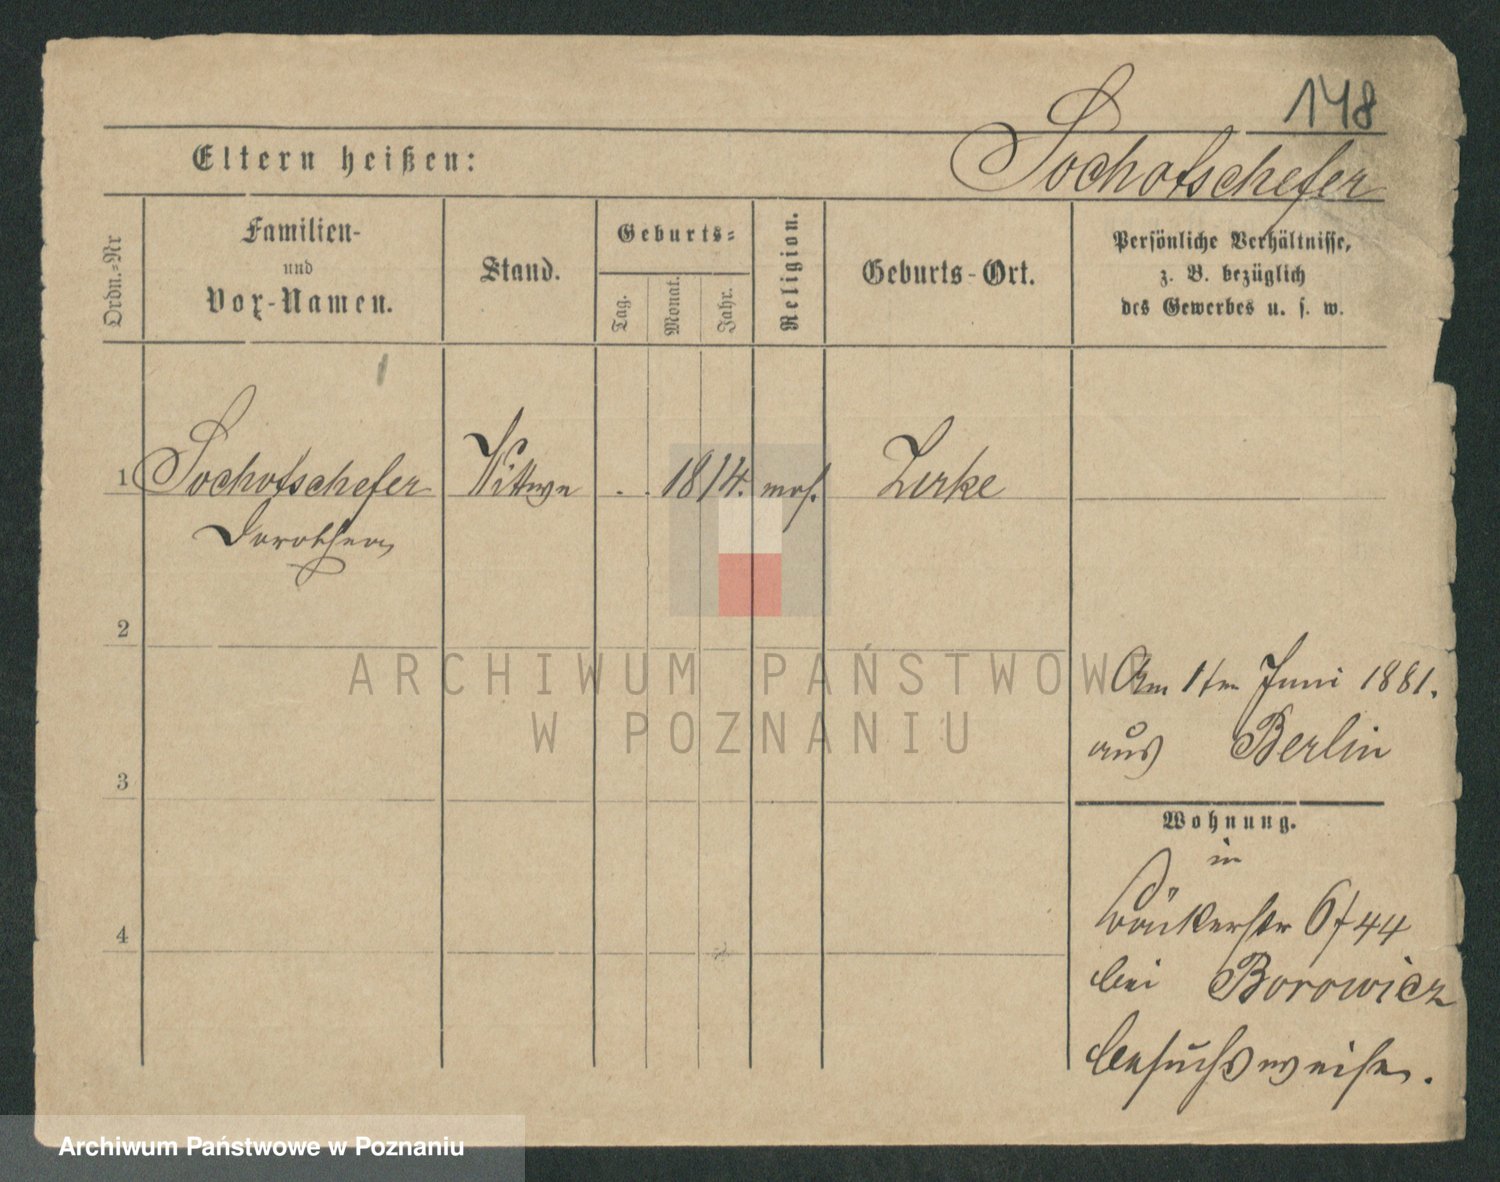 148
Sochotschefer
Eltern heißen:
Ordn.-Nr
Familien-
und
Vor-Namen.
Stand.
Geburts-
Tag.
Monat.
Jahr.
Religion.
Geburts-Ort.
Persönliche Verhältnisse,
z. B. bezüglich
des Gewerbes u. s. w.
1 Sochotschefer Wittwe . . 1814. mos. Zirke
Dorothea
2
ARCHIWUM PAŃSTWOWE
W POZNANIU
Am 1ten Juni 1881.
aus Berlin
3
Wohnung.
in
6/44
4
bei Borowicz
besuchsweise.
Archiwum Państwowe w Poznaniu